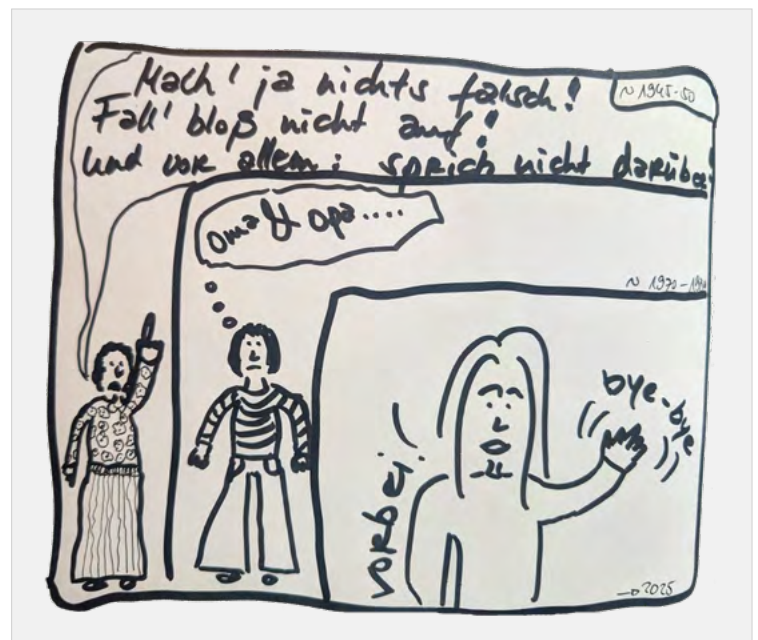 Mach' ja nichts falsch!
~ 1945-50
Fall' bloß nicht auf!
und vor allem: sprich nicht darüber!
Oma & Opa.....
vorbei!
bye-bye
→ 2025